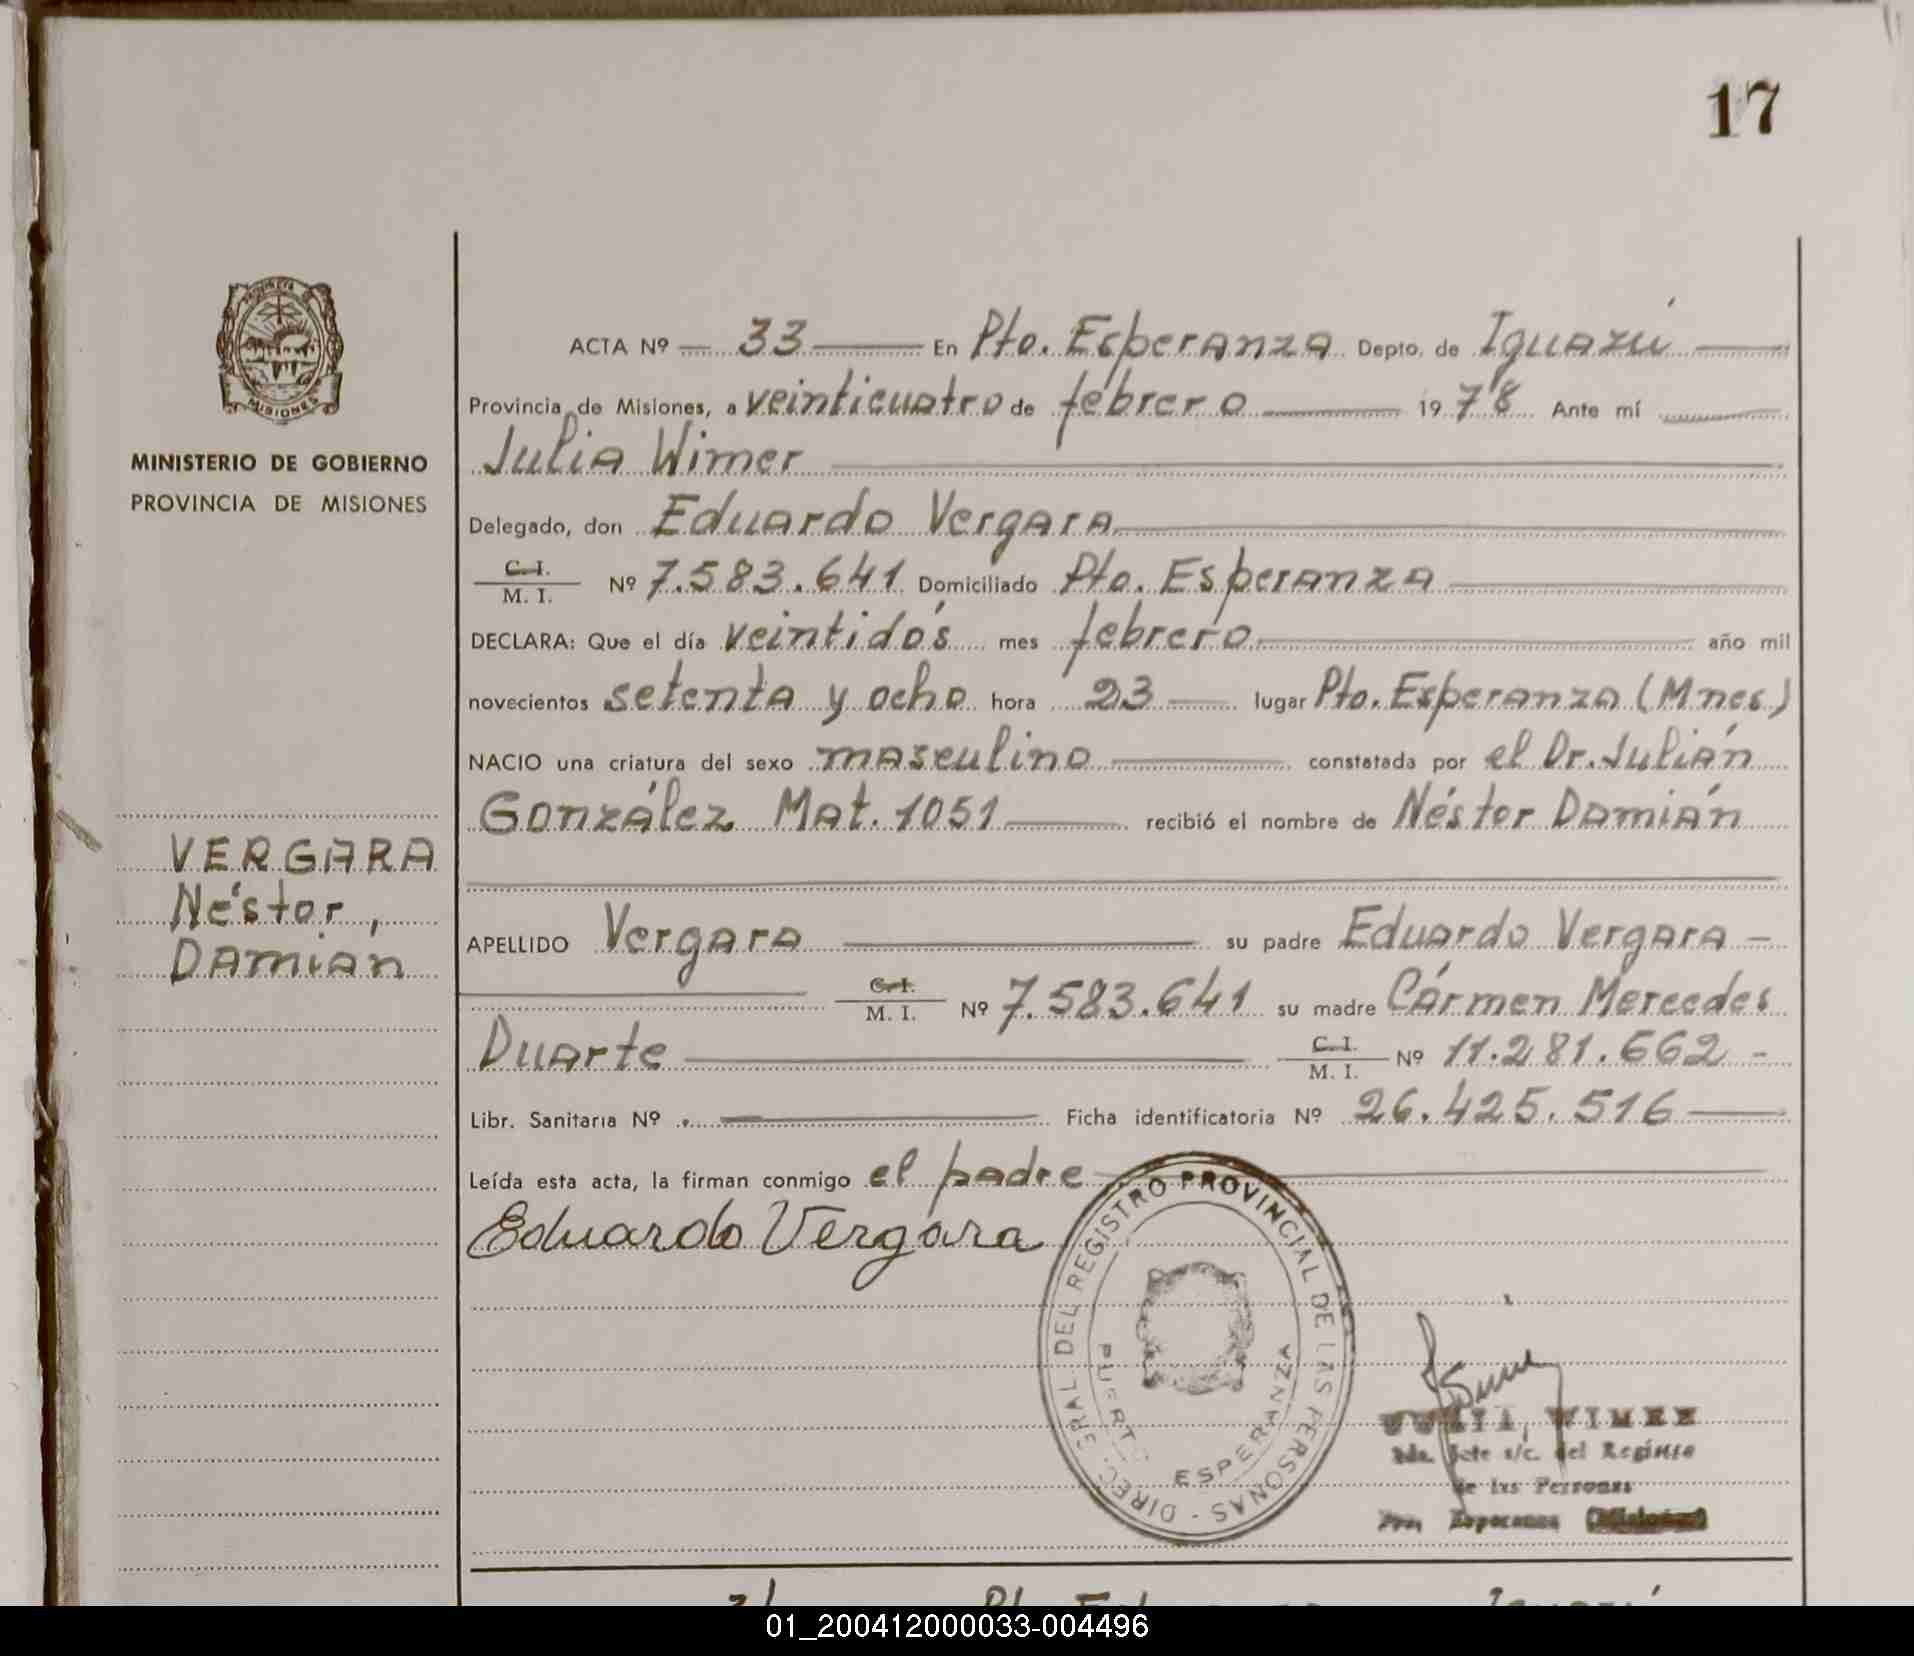 17
PROVINCIA DE
MISIONES
MINISTERIO DE GOBIERNO
PROVINCIA DE MISIONES
VERGARA
Néstor,
Damián
ACTA Nº 33 En Pto. Esperanza Depto. de Iguazú
Provincia de Misiones, a veinticuatro de febrero 1978 Ante mí
Julia Wimer
Delegado, don Eduardo Vergara
C. I.
M. I. Nº 7.583.641 Domiciliado Pto. Esperanza
DECLARA: Que el día veintidós mes febrero año mil
novecientos setenta y ocho hora 23 lugar Pto. Esperanza (Mnes.)
NACIO una criatura del sexo masculino constatada por el Dr. Julián
González Mat. 1051 recibió el nombre de Néstor Damián
APELLIDO Vergara su padre Eduardo Vergara
C. I.
M. I. Nº 7.583.641 su madre Cármen Mercedes
Duarte C. I.
M. I. Nº 11.281.662
Libr. Sanitaria Nº Ficha identificatoria Nº 26.425.516
Leída esta acta, la firman conmigo el padre
Eduardo Vergara
DIREC. GRAL. DEL REGISTRO PROVINCIAL DE LAS PERSONAS -
PUERTO ESPERANZA
JULIA WIMER
Jefe s/c. del Registro
de las Personas
Pto. Esperanza (Misiones)
01_200412000033-004496